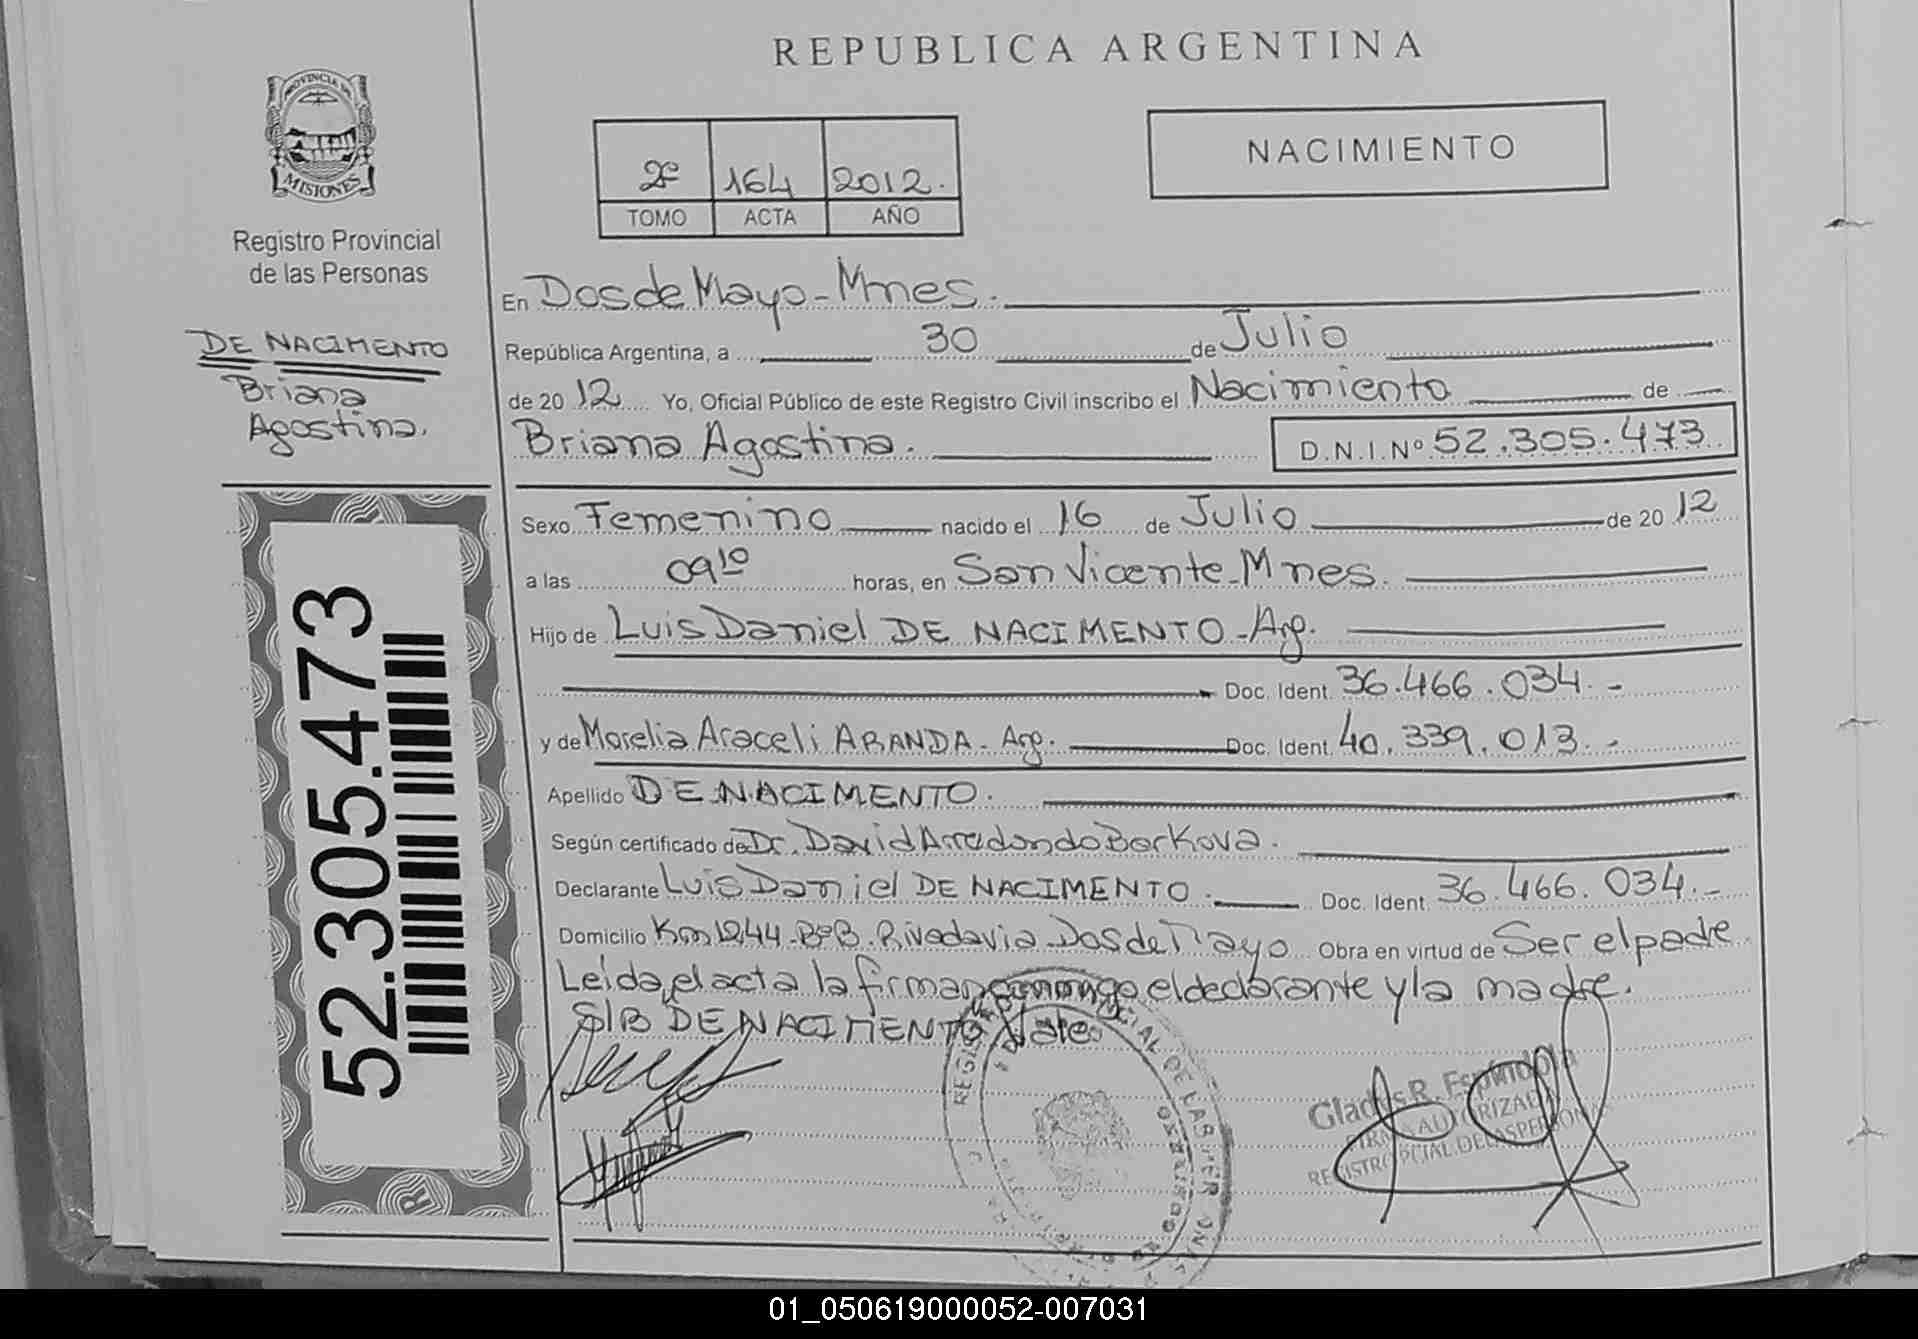 REPUBLICA ARGENTINA
PROVINCIA DE
MISIONES
Registro Provincial
de las Personas
2º 164 2012.
TOMO ACTA AÑO
NACIMIENTO
DE NACIMENTO
Briana
Agostina.
52.305.473
En Dos de Mayo - Mnes.
República Argentina, a 30 de Julio
de 20 12 Yo, Oficial Público de este Registro Civil inscribo el Nacimiento de
Briana Agostina. D.N.I.Nº 52.305.473
Sexo Femenino nacido el 16 de Julio de 20 12
a las 09¹⁰ horas, en San Vicente - Mnes.
Hijo de Luis Daniel DE NACIMENTO - Arg.
Doc. Ident. 36.466.034.-
y de Morelia Araceli ARANDA - Arg. Doc. Ident. 40.339.013.-
Apellido DE NACIMENTO.
Según certificado de Dr. David Arredondo Borkova.
Declarante Luis Daniel DE NACIMENTO. Doc. Ident. 36.466.034.-
Domicilio Km 1244 - Bº B. Rivadavia Dos de Mayo Obra en virtud de Ser el padre
Leída el acta la firman conmigo el declarante y la madre.
S/B DE NACIMENTO Vale
Gladys R. Espíndola
FIRMA AUTORIZADA
REGISTRO PCIAL. DE LAS PERSONAS
01_050619000052-007031